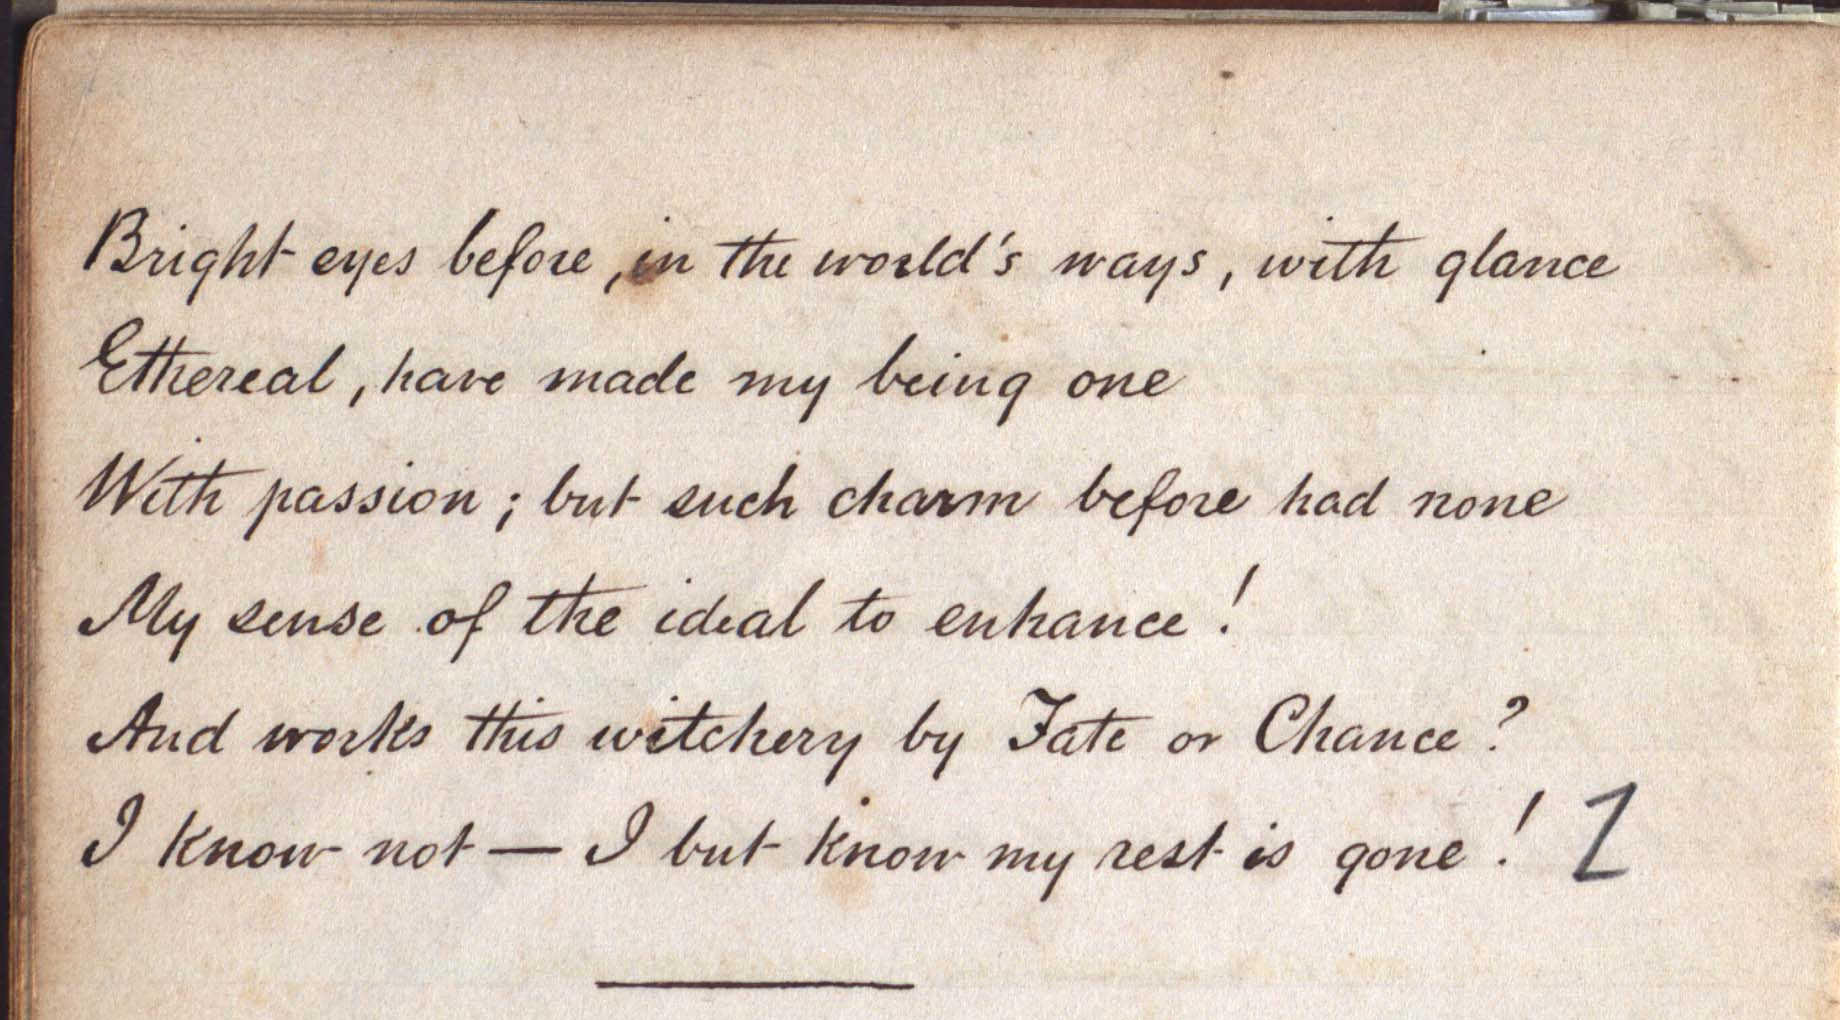 Bright eyes before, in the world's ways, with glance
Ethereal, have made my being one
With passion; but such charm before had none
My sense of the ideal to enhance!
And works this witchery by Fate or Chance?
I know not — I but know my rest is gone!